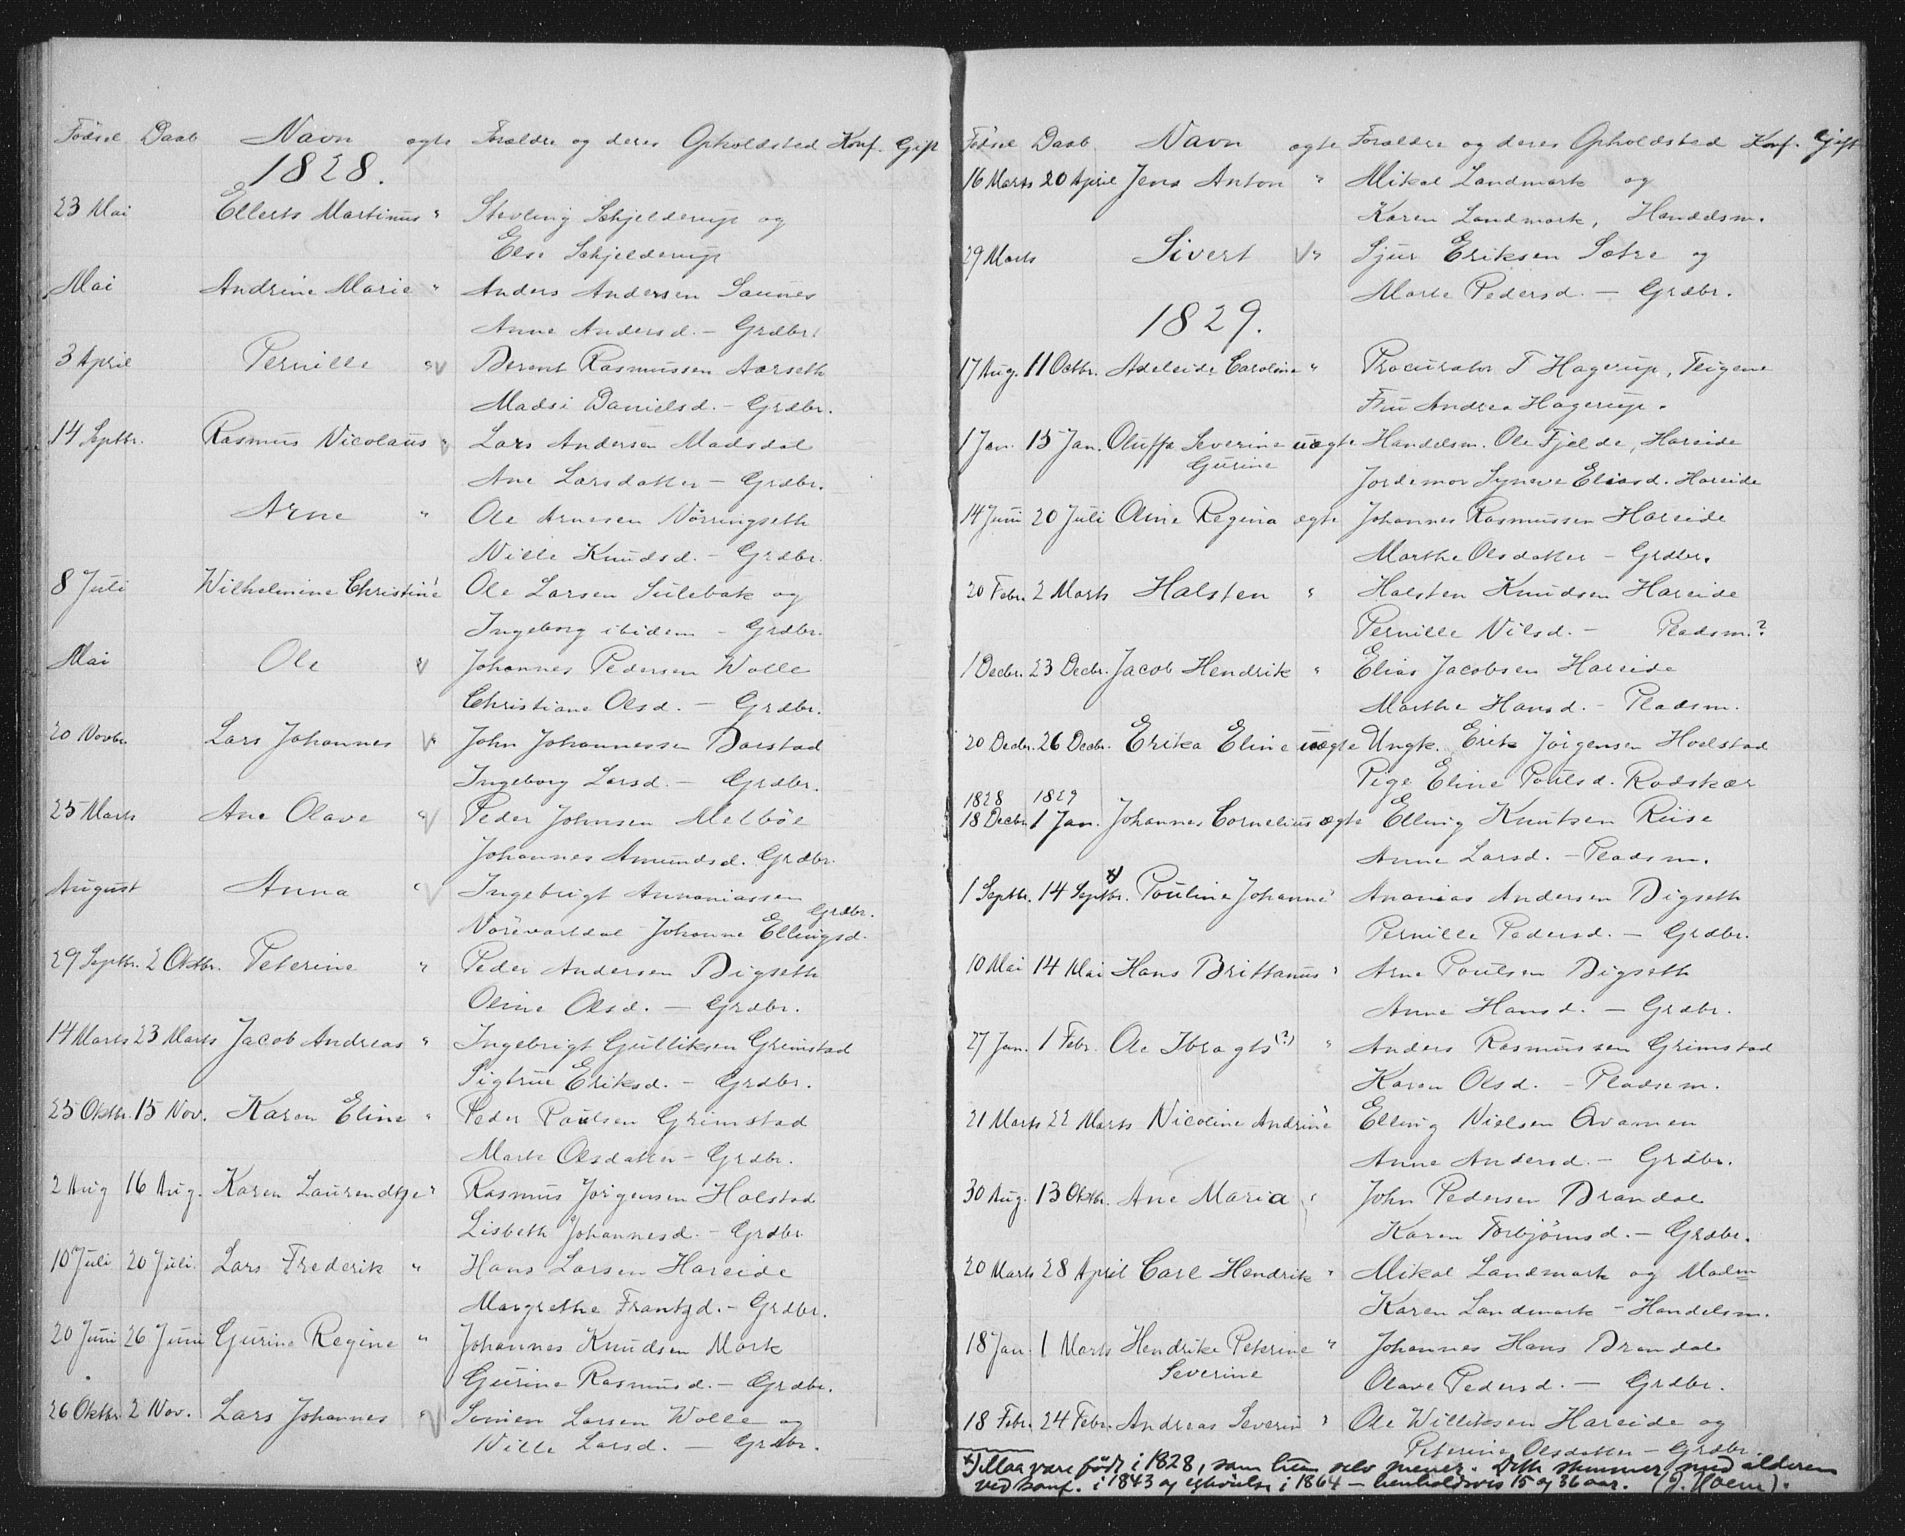 Födsel Daab Navn ægte Forældre og deres Opholdsted Konf. Gift
1828.
23 Mai Ellerts Martinus " Stevling Schjelderup og
Else Schjelderup
Mai Andrine Marie " Anders Andersen Saunes
Anne Andersd. - Grdbr.
3 April Pernille " v Berent Rasmussen Aarseth
Madsi Danielsd. - Grdbr.
14 Septbr. Rasmus Nicolaus " v Lars Andersen Madsdal
Ane Larsdatter - Grdbr.
Arne " Ole Arnesen Nörringseth
Nille Knudsd. - Grdbr.
8 Juli Wilhelmine Christine " Ole Larsen Sulebak og
Ingeborg ibidem - Grdbr.
Mai Ole " v Johannes Pedersen Wolle
Christiane Olsd. - Grdbr.
20 Novbr. Lars Johannes v " John Johannessen Barstad
Ingeborg Larsd. - Grdbr.
25 Marts Ane Olave " v Peder Johnsen Melböe
Johannes Amundsd. Grdbr.
August Anna " v Ingebrigt Annaniassen
Grdbr.
Nörevartdal Johanne Ellingsd.
29 Septbr. 2 Oktbr. Peterine " Peder Andersen Bigseth
Oline Olsd. - Grdbr.
14 Marts 23 Marts Jacob Andreas " Ingebrigt Gulliksen Grimstad
Sigtrue Eriksd. - Grdbr.
25 Oktbr. 15 Nov. Karen Eline " Peder Paulsen Grimstad
Marte Olsdatter - Grdbr.
2 Aug 16 Aug. Karen Laurendtze " Rasmus Jörgensen Halstad
Lisbeth Johannesd. - Grdbr
10 Juli 20 Juli. Lars Frederik " Hans Larsen Hareide
Margrethe Frantzd. - Grdbr.
20 Juni 26 Juni Gurine Regine " Johannes Knudsen Mork
Gurine Rasmusd. - Grdbr.
26 Oktbr 2 Nov. Lars Johannes " v Simen Larsen Wolle og
Nille Larsd. - Grdbr.
Födsel Daab Navn ægte Forældre og deres Opholdsted Konf. Gift
16 Marts 20 April Jens Anton " Mikal Landmark og
Karen Landmark, Handelsm.
29 Marts Sivert v " Sjur Eriksen Sætre og
Marte Pedersd. - Grdbr.
1829.
17 Aug. 11 Octbr. Adeleide Caroline " Procurator T Hagerup, Teigene
Fru Andrea Hagerup.
1 Jan. 15 Jan. Oluffa Severine uægte Handelsm. Ole Fjelde, Hareide
Gurine Jordemor Syneve Eliasd. Hareide
14 Juni 20 Juli Oline Regina ægte Johannes Rasmussen Hareide
Marthe Olsdatter - Grdbr.
20 Febr. 2 Marts Halsten " Halsten Knudsen Hareide
Pernille Nilsd. - Pladsm.?
1 Decbr. 23 Decbr. Jacob Hendrik " Elias Jacobsen Hareide
Marthe Hansd. - Pladsm.
20 Decbr. 26 Decbr. Erika Eline uægte Ungk. Erik Jörgensen Holstad
Pige Eline Poulsd. Rodskær
1828 1829
18 Decbr. 1 Jan. Johannes Cornelius ægte Elling Knutsen Riise
Anne Larsd. - Pladsm.
x)
1 Septbr. 14 Septbr. Pouline Johanne " Ananias Andersen Bigseth
Pernille Pedersd. - Grdbr.
10 Mai 14 Mai Hans Brittanus " Arne Poulsen Bigseth
Anne Hansd. - Grdbr.
27 Jan. 1 Febr. Ole Ibragts (?) " Anders Rasmussen Grimstad
Karen Olsd. - Pladsem.
21 Marts 22 Marts Nicoline Andrine " Elling Nielsen Qvamen
Anne Andersd. - Grdbr.
30 Aug. 13 Oktbr. Ane Maria " John Pedersen Brandal
Karen Torbjörnsd. - Grdbr.
20 Marts 28 April Carl Hendrik " Mikal Landmark og Madm
Karen Landmark - Handelsm.
18 Jan. 1 Marts Hendrike Peterine " Johannes Hans Brandale
Severine Olave Pedersd. - Grdbr.
18 Febr. 24 Febr. Andreas Severin " Ole Williksen Hareide og
Peterine Olsdatter - Grdbr
x) Maa være født i 1828, som hun selv mener. Dette stemmer med alderen
ved konf. i 1843 og i 1864 - henholdsvis 15 og 36 aar.